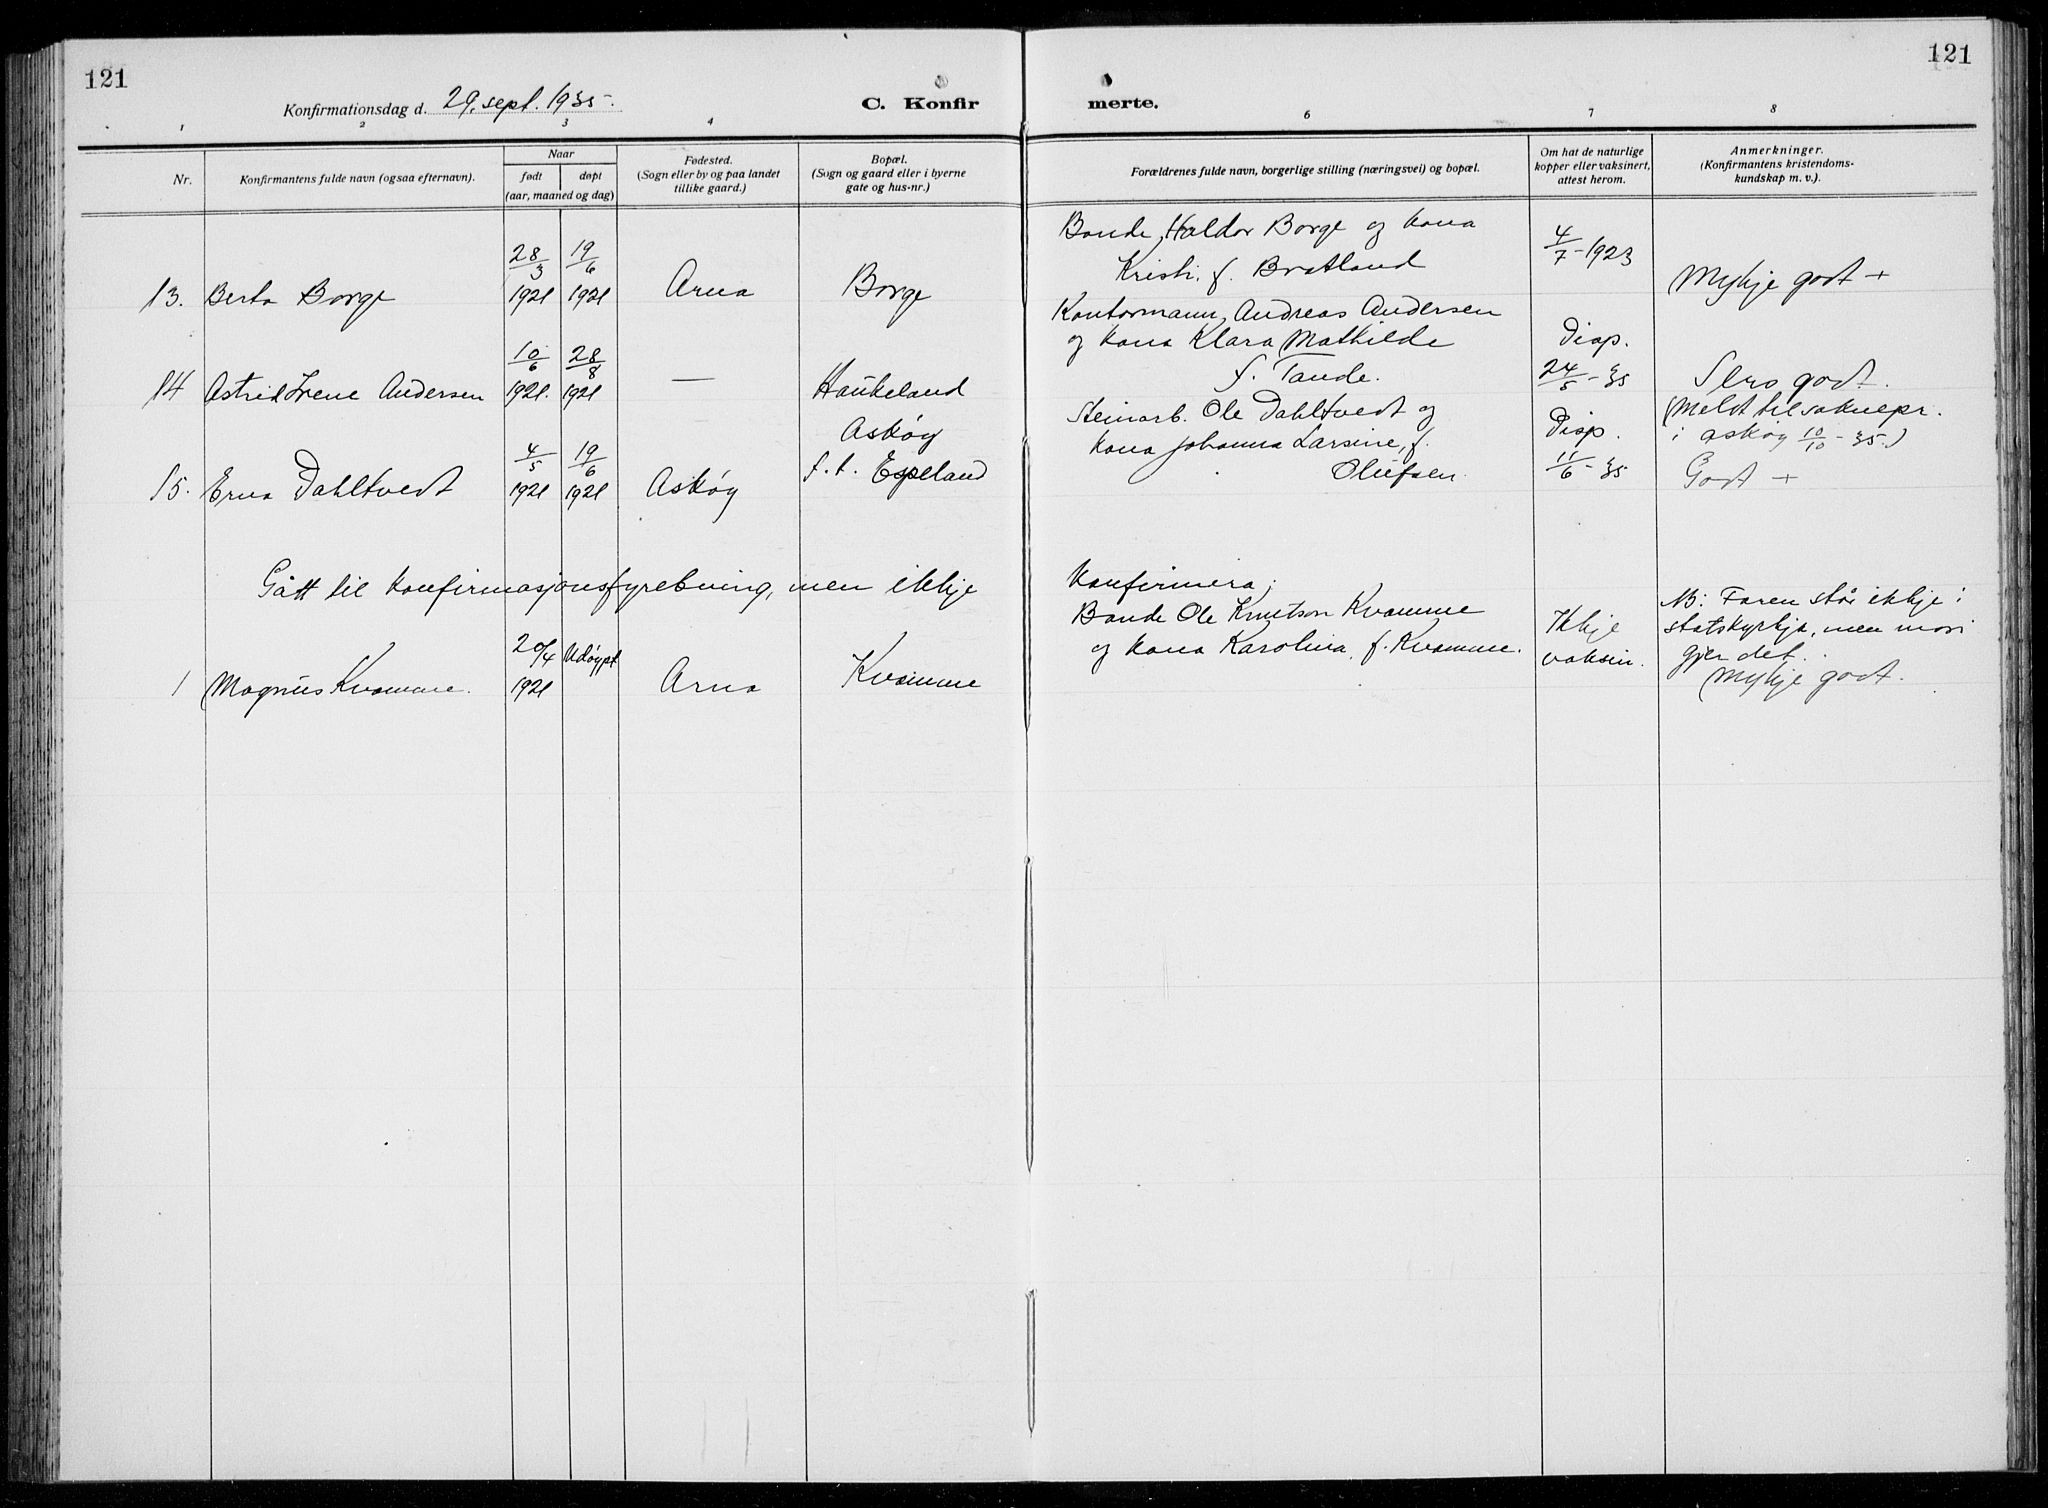 121
121
Konfirmationsdag d. 29. sept. 1935.
C. Konfir
merte.
1 2 3 4 6 7 8
Nr.
Konfirmantens fulde navn (ogsaa efternavn).
Naar
født døpt
(aar, maaned og dag)
Fødested.
(Sogn eller by og paa landet
tillike gaard.)
Bopæl.
(Sogn og gaard eller i byerne
gate og hus-nr.)
Forældrenes fulde navn, borgerlige stilling (næringsvei) og bopæl.
Om hat de naturlige
kopper eller vaksinert,
attest herom.
Anmerkninger.
(Konfirmantens kristendoms-
kundskap m. v.).
13. Berta Borge
28/3 19/6
1921 1921
Arna
Borge
Bonde, Haldor Borge og kona
Kristi. f. Bratland
4/7-1923
Mykje godt +
14 Astrid Irene Andersen
10/6 28/8
1921. 1921
—
Haukeland
Kontormann, Andreas Andersen
og kona Klara Mathilde
f. Tande.
Disp.
24/5-35
Sers godt.
15. Erna Dahltvedt
4/5 19/6
1921 1921
Askøy
Askøy
f. t. Espeland
Steinarb. Ole Dahltvedt og
kona Johanna Larsine, f.
Olufsen.
Disp.
11/6-35
(Meldt til soknepr.
i Askøy 10/10-35.)
Godt +
Gått til konfirmasjonsfyrebuing, men ikkje
konfirmera;
1 Magnus Kvamme.
20/4
1921
Udøypt
Arna
Kvamme
Bonde Ole Knutson Kvamme
og kona Karolina, f. Kvamme.
Ikkje
vaksin.
NB: Faren står ikkje i
statskyrkja, men mori
gjer det.
Mykje godt.